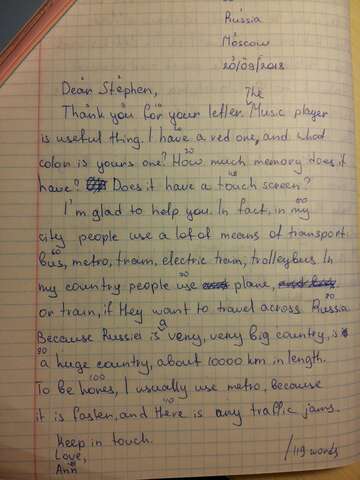 Russia
Moscow
20/09/2018
Dear Stephen,
The
Thank you for your letter. Music player
is useful thing. I have a red one, and what
color is yours one? How much memory does it
have? Does it have a touch screen?
I'm glad to help you. In fact, in my
city people use a lot of means of transport:
bus, metro, tram, electric train, trolleybus. In
my country people use plane,
or train, if they want to travel across Russia.
Because Russia is very, very big country, is
a huge country, about 10000 km in length.
To be hones, I usually use metro, because
it is faster, and there is any traffic jams.
Keep in touch.
Love,
Ann
119 words